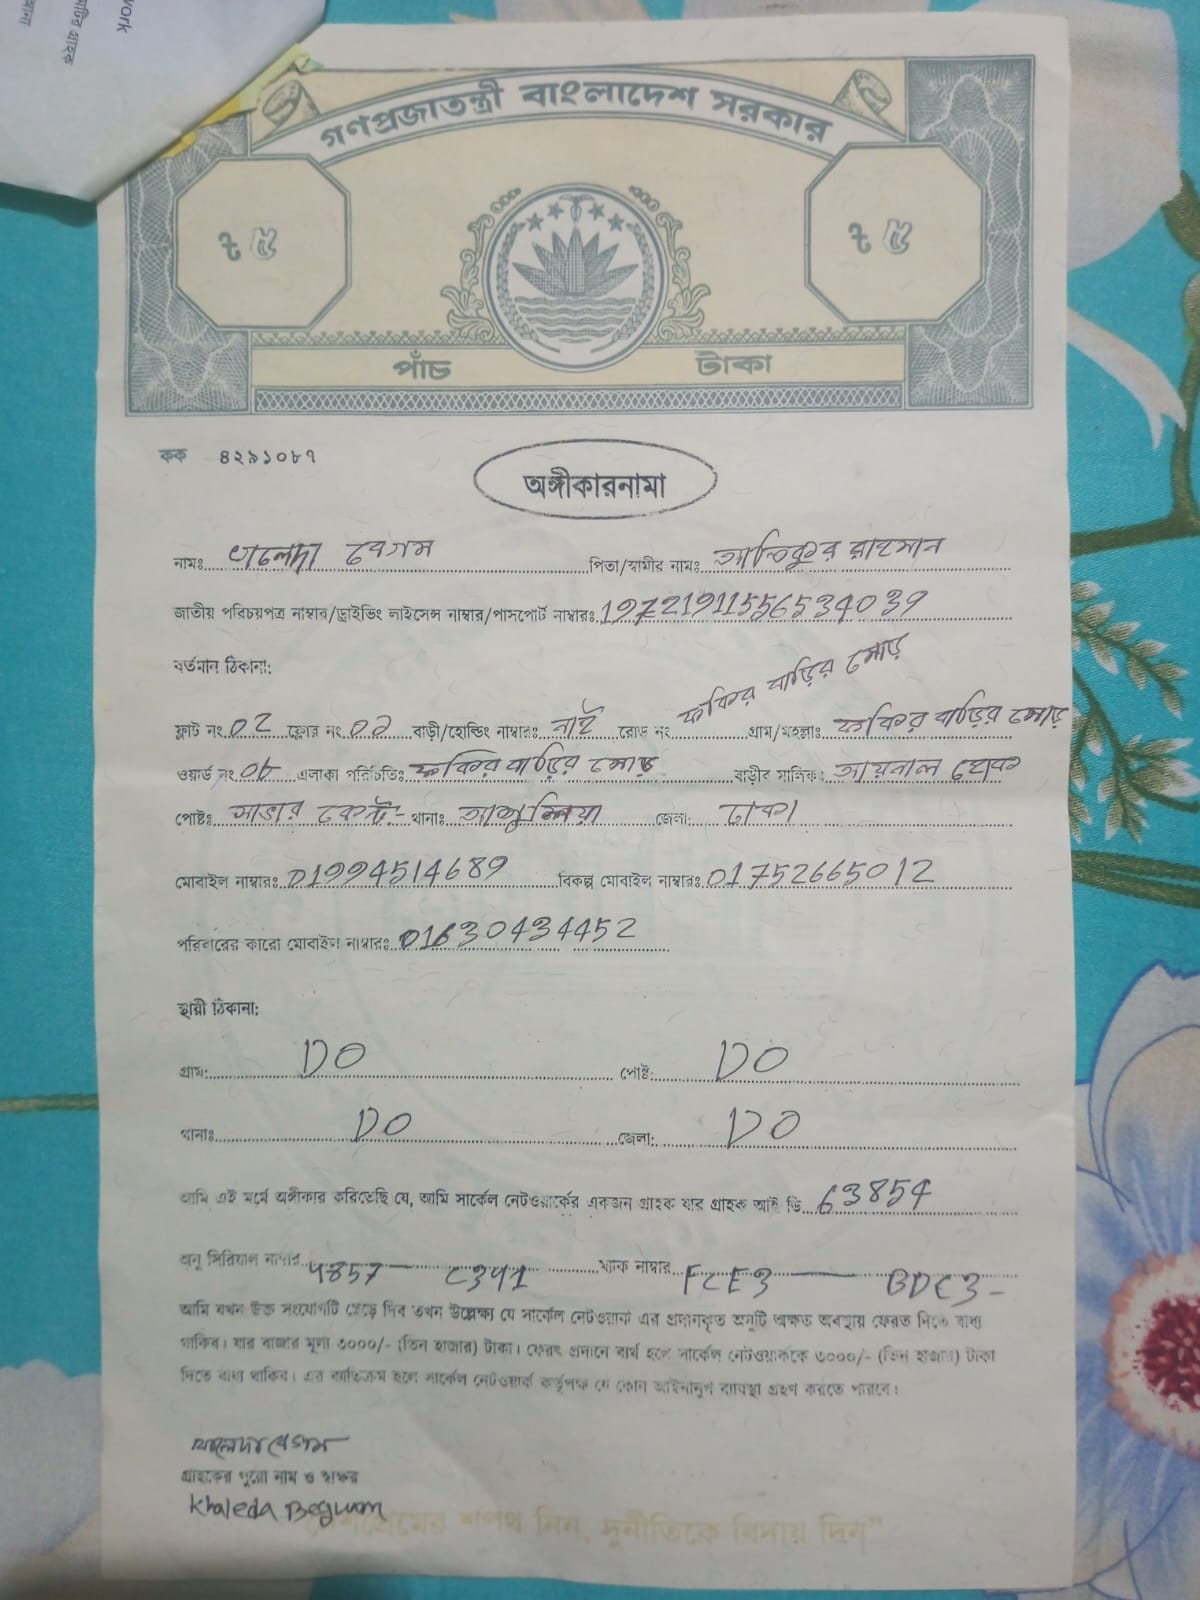 work
গণপ্রজাতন্ত্রী বাংলাদেশ সরকার
৳ ৫ ৳ ৫
পাঁচ টাকা
কক ৪২৯১০৮৭
অঙ্গীকারনামা
নামঃ খালেদা বেগম পিতা/স্বামীর নামঃ আতিকুর রহমান
জাতীয় পরিচয়পত্র নাম্বার/ড্রাইভিং লাইসেন্স নাম্বার/পাসপোর্ট নাম্বারঃ 19721911556534039
বর্তমান ঠিকানা:
ফ্লাট নং 02 ফ্লোর নং 02 বাড়ী/হোল্ডিং নাম্বারঃ নাই রোড নং ফকির বাড়ির মোড় গ্রাম/মহল্লাঃ ফকির বাড়ির মোড়
ওয়ার্ড নং 0৮ এলাকা পরিচিতিঃ ফকির বাড়ির মোড় বাড়ীর মালিক: আয়নাল হোক
পোষ্টঃ সাভার কেন্ট:- থানাঃ আশুলিয়া জেলা: ঢাকা
মোবাইল নাম্বারঃ 01994514689 বিকল্প মোবাইল নাম্বারঃ 01752665012
পরিবারের কারো মোবাইল নাম্বারঃ 01630434452
স্থায়ী ঠিকানা:
গ্রাম: DO পোষ্ট: DO
থানাঃ DO জেলা: DO
আমি এই মর্মে অঙ্গীকার করিতেছি যে, আমি সার্কেল নেটওয়ার্কের একজন গ্রাহক যার গ্রাহক আই ডি 63854
অনু সিরিয়াল নাম্বার 4857 — C341 ম্যাক নাম্বার FCE3 — BDC3-
আমি যখন উক্ত সংযোগটি ছেড়ে দিব তখন উল্লেক্ষ্য যে সার্কেল নেটওয়ার্ক এর প্রদানকৃত অনুটি অক্ষত অবস্থায় ফেরত দিতে বাধ্য
থাকিব। যার বাজার মূল্য ৩০০০/- (তিন হাজার) টাকা। ফেরৎ প্রদানে ব্যর্থ হলে সার্কেল নেটওয়ার্ককে ৩০০০/- (তিন হাজার) টাকা
দিতে বাধ্য থাকিব। এর ব্যতিক্রম হলে সার্কেল নেটওয়ার্ক কর্তৃপক্ষ যে কোন আইনানুগ ব্যাবস্থা গ্রহণ করতে পারবে।
খালেদা বেগম
গ্রাহকের পুরো নাম ও স্বাক্ষর
Khaleda Begum
"দেশপ্রেমের শপথ নিন, দুর্নীতিকে বিদায় দিন"